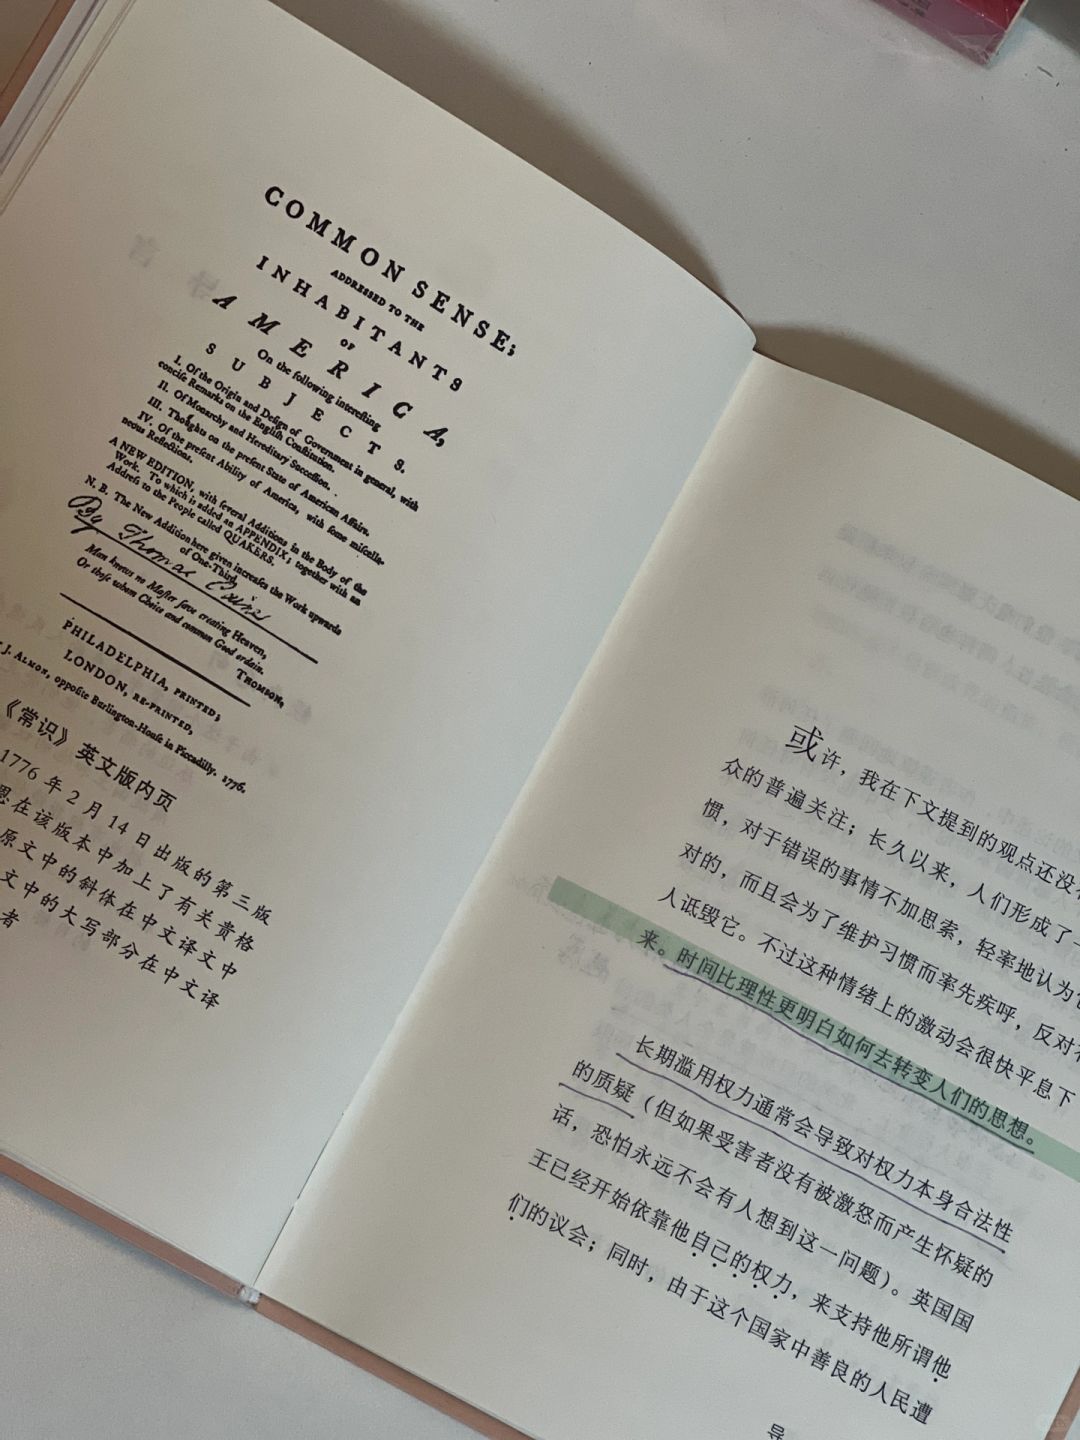 COMMON SENSE;
ADDRESSED TO THE
INHABITANTS
OF
AMERICA,
On the following interesting
SUBJECTS.
I. Of the Origin and Design of Government in general, with
concise Remarks on the English Constitution.
II. Of Monarchy and Hereditary Succession.
III. Thoughts on the present State of American Affairs.
IV. Of the present Ability of America, with some miscella-
neous Reflections.
A NEW EDITION, with several Additions in the Body of the
Work. To which is added an APPENDIX; together with an
Address to the People called QUAKERS.
N. B. The New Addition here given increases the Work upwards
of One-Third.
By Thomas Paine
Man knows no Master save creating Heaven,
Or those whom Choice and common Good ordain.
THOMSON.
PHILADELPHIA, PRINTED;
LONDON, RE-PRINTED,
J. ALMON, opposite Burlington-House in Piccadilly. 1776.
《常识》英文版内页
1776 年 2 月 14 日出版的第三版
恩在该版本中加上了有关贵格
原文中的斜体在中文译文中
文中的大写部分在中文译
者
或许，我在下文提到的观点还没有
众的普遍关注；长久以来，人们形成了一
惯，对于错误的事情不加思索，轻率地认为它
对的，而且会为了维护习惯而率先疾呼，反对有
人诋毁它。不过这种情绪上的激动会很快平息下
来。时间比理性更明白如何去转变人们的思想。
长期滥用权力通常会导致对权力本身合法性
的质疑（但如果受害者没有被激怒而产生怀疑的
话，恐怕永远不会有人想到这一问题）。英国国
王已经开始依靠他自己的权力，来支持他所谓他
们的议会；同时，由于这个国家中善良的人民遭
导